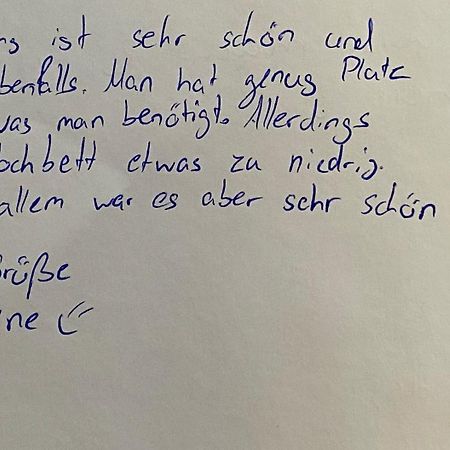 ng ist sehr schön und
benfalls. Man hat genug Platz
was man benötigt. Allerdings
ochbett etwas zu niedrig.
allem war es aber sehr schön
Grüße
ne